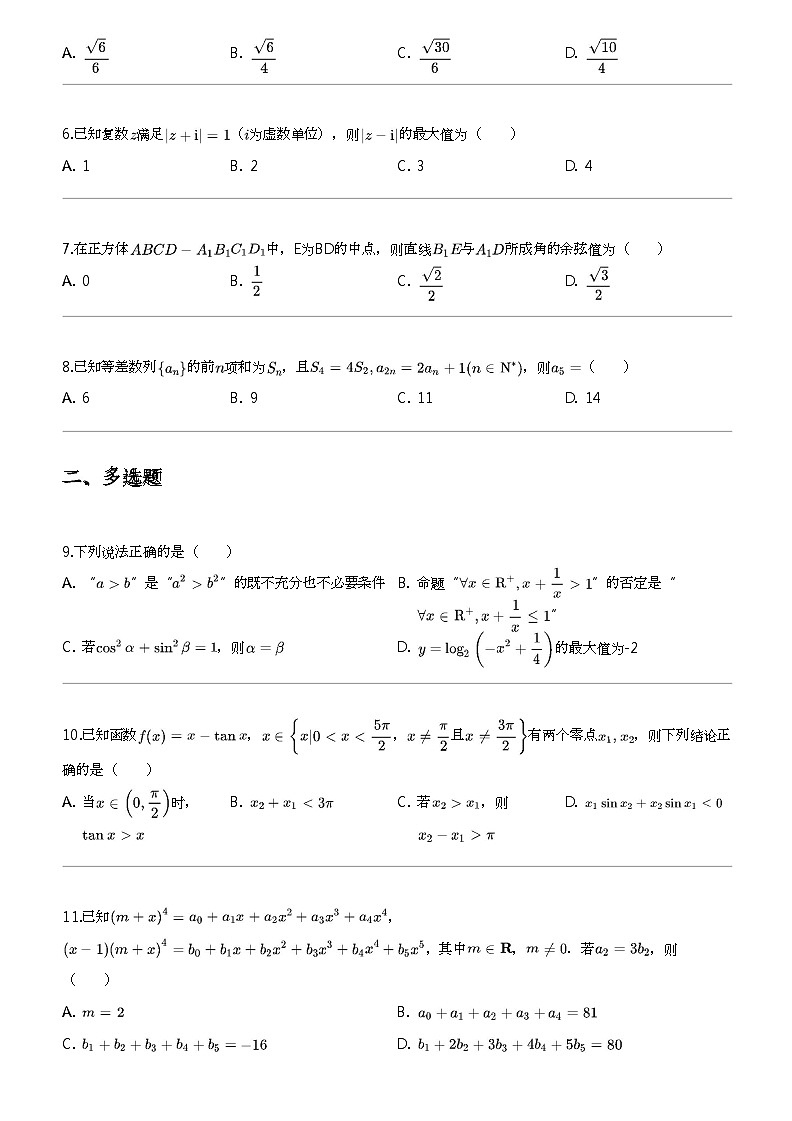 A. $\frac{\sqrt{6}}{6}$ B. $\frac{\sqrt{6}}{4}$ C. $\frac{\sqrt{30}}{6}$ D. $\frac{\sqrt{10}}{4}$
6.已知复数$z$满足$|z+\mathrm{i}|=1$（$i$为虚数单位），则$|z-\mathrm{i}|$的最大值为（　　）
A. 1 B. 2 C. 3 D. 4
7.在正方体$ABCD-A_1B_1C_1D_1$中，E为BD的中点，则直线$B_1E$与$A_1D$所成角的余弦值为（　　）
A. 0 B. $\frac{1}{2}$ C. $\frac{\sqrt{2}}{2}$ D. $\frac{\sqrt{3}}{2}$
8.已知等差数列$\{a_n\}$的前$n$项和为$S_n$，且$S_4=4S_2,a_{2n}=2a_n+1(n\in\mathrm{N}^*)$，则$a_5=$（　　）
A. 6 B. 9 C. 11 D. 14
二、多选题
9.下列说法正确的是（　　）
A. “$a>b$”是“$a^2>b^2$”的既不充分也不必要条件 B. 命题“$\forall x\in\mathrm{R}^+,x+\frac{1}{x}>1$”的否定是“
$\forall x\in\mathrm{R}^+,x+\frac{1}{x}\leq1$”
C. 若$\cos^2\alpha+\sin^2\beta=1$，则$\alpha=\beta$ D. $y=\log_2\left(-x^2+\frac{1}{4}\right)$的最大值为-2
10.已知函数$f(x)=x-\tan x$，$x\in\left\{x|0<x<\frac{5\pi}{2}，x\neq\frac{\pi}{2}且x\neq\frac{3\pi}{2}\right\}$有两个零点$x_1,x_2$，则下列结论正
确的是（　　）
A. 当$x\in\left(0,\frac{\pi}{2}\right)$时， B. $x_2+x_1<3\pi$ C. 若$x_2>x_1$，则 D. $x_1\sin x_2+x_2\sin x_1<0$
$\tan x>x$ $x_2-x_1>\pi$
11.已知$(m+x)^4=a_0+a_1x+a_2x^2+a_3x^3+a_4x^4$，
$(x-1)(m+x)^4=b_0+b_1x+b_2x^2+b_3x^3+b_4x^4+b_5x^5$，其中$m\in\mathbf{R}$，$m\neq0$．若$a_2=3b_2$，则
（　　）
A. $m=2$ B. $a_0+a_1+a_2+a_3+a_4=81$
C. $b_1+b_2+b_3+b_4+b_5=-16$ D. $b_1+2b_2+3b_3+4b_4+5b_5=80$